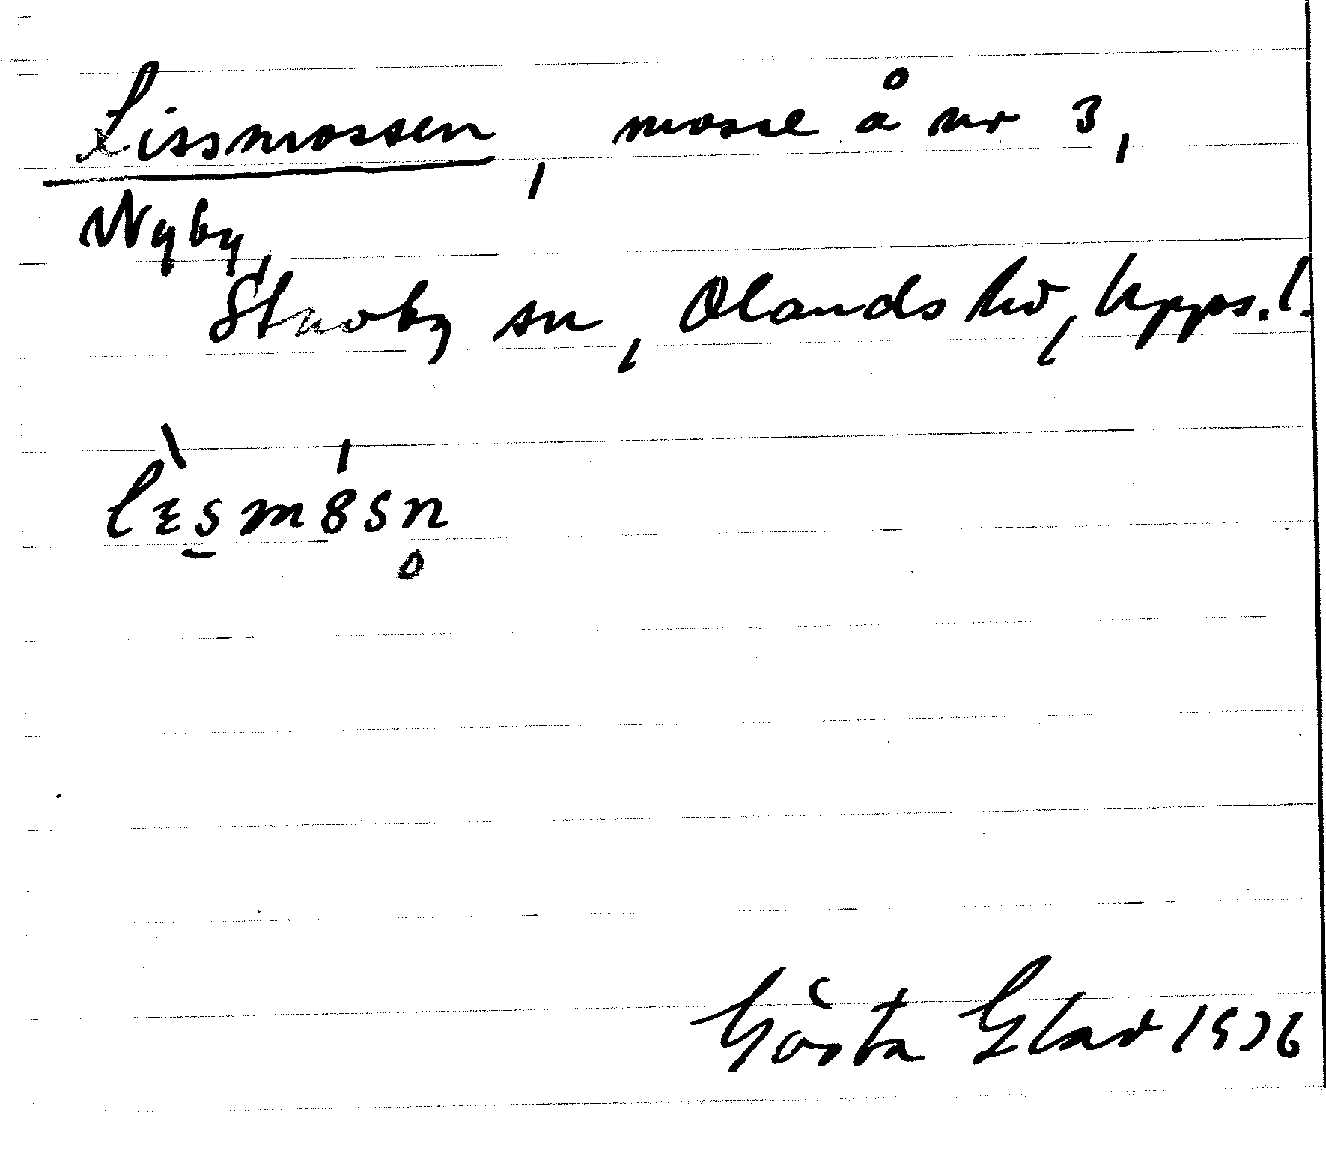 Lissmossen, mosse å nr 3,
Nyby,
Stavby sn, Olands hd, Upps. l.
Gösta Glad